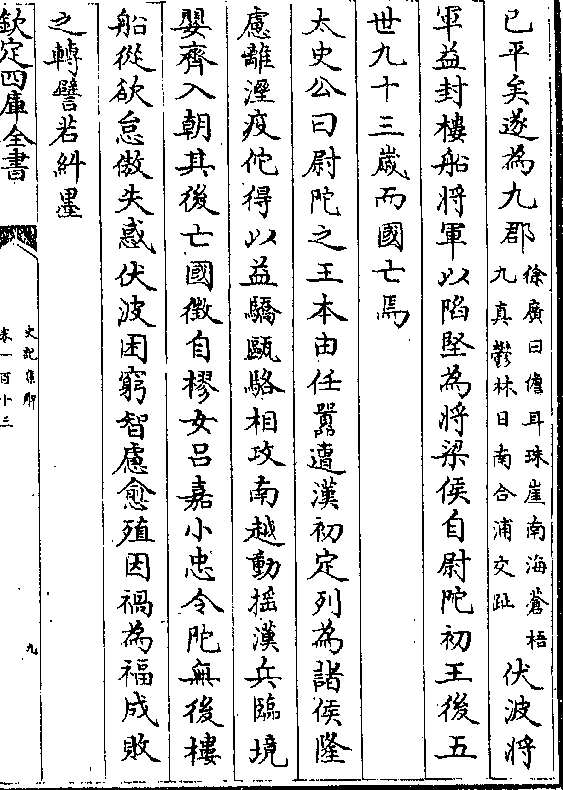 已平矣遂為九郡徐廣曰儋耳珠崖南海蒼梧九真鬱林日南合浦交趾伏波將
軍益封樓船將軍以陷堅為將梁侯自尉陀初王後五
世九十三歲而國亡焉
太史公曰尉陀之王本由任囂遭漢初定列為諸侯隆
慮離溼疫佗得以益驕甌駱相攻南越動搖漢兵臨境
嬰齊入朝其後亡國徵自樛女呂嘉小忠令陀無後樓
船從欲怠傲失惑伏波困窮智慮愈殖因禍為福成敗
之轉譬若糾墨
欽定四庫全書
史記集解
卷一百十三
九